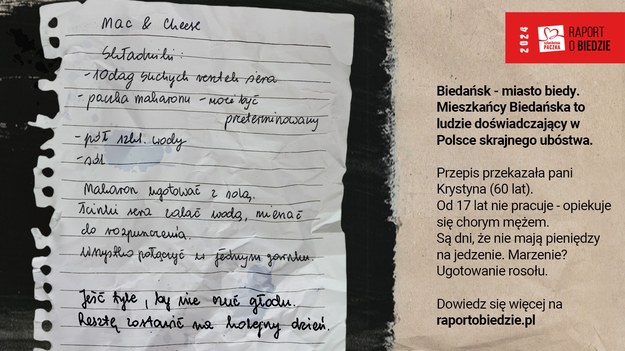 Mac & Cheese
Składniki:
- 10dag suchych resztek sera
- paczka makaronu - może być
przeterminowany
- pół szkl. wody
- sól
Makaron ugotować z solą.
Ścinki sera zalać wodą, mieszać
do rozpuszczenia.
Wszystko połączyć w jednym garnku.
Jeść tyle, by nie czuć głodu.
Resztę zostawić na kolejny dzień.
2024
SZLACHETNA
PACZKA
RAPORT
O BIEDZIE
Biedańsk - miasto biedy.
Mieszkańcy Biedańska to
ludzie doświadczający w
Polsce skrajnego ubóstwa.
Przepis przekazała pani
Krystyna (60 lat).
Od 17 lat nie pracuje - opiekuje
się chorym mężem.
Są dni, że nie mają pieniędzy
na jedzenie. Marzenie?
Ugotowanie rosołu.
Dowiedz się więcej na
raportobiedzie.pl